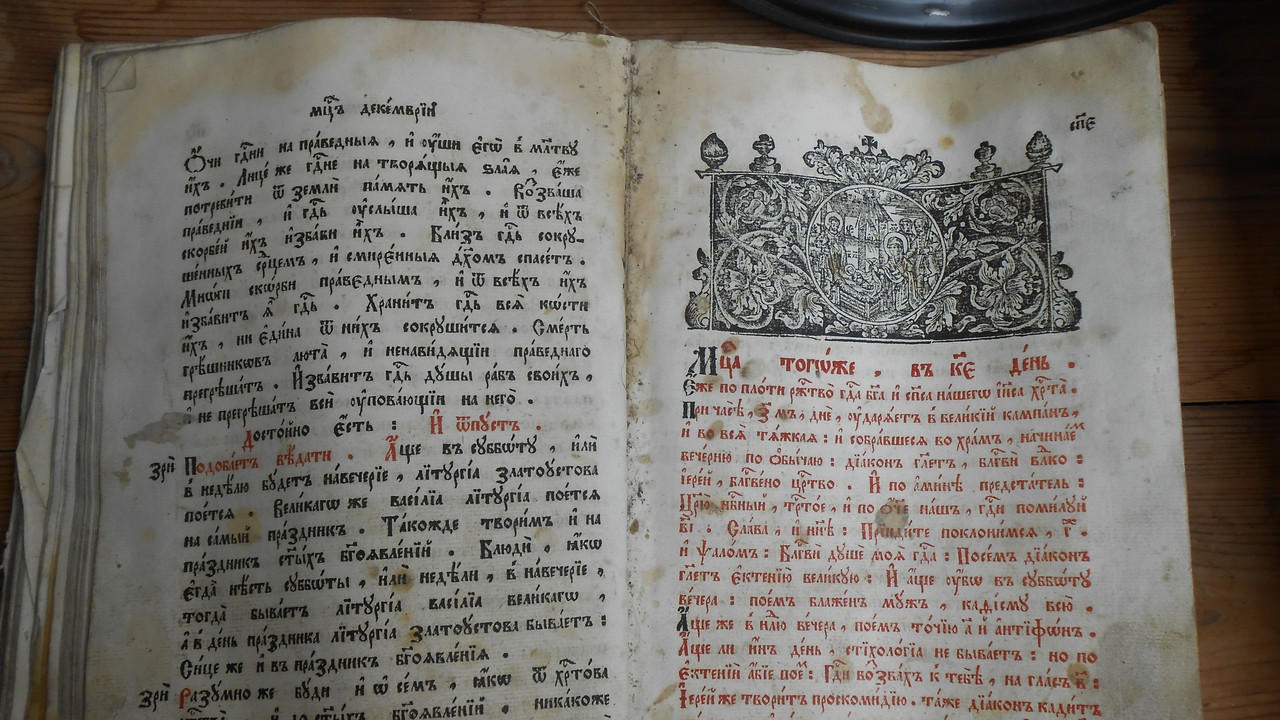 мц҃ъ деке́мврїй
Ѻ҆́чи гдⷭ҇ни на пра́вєдныѧ, и҆ ᲂу҆́ши є҆гѡ̀ в̾ мл҃тву
и҆́хъ. Лице́ же гдⷭ҇не на творѧ́щыѧ ѕла̑ѧ, є҆́же
потреби́ти ѿ землѝ па́мѧть и҆́хъ. Воззва́ша
пра́вєднїи, и҆ гдⷭ҇ь ᲂу҆слы́ша и҆̀хъ, и҆ ѿ всѣ́хъ
скорбе́й и҆́хъ и҆зба́ви и҆̀хъ. Бли́зъ гдⷭ҇ь сокрꙋ-
ше́нныхъ срⷣцемъ, и҆ смире́нныѧ дх҃омъ спасе́тъ.
Мнѡ́ги скѡ́рби пра́вєднымъ, и҆ ѿ всѣ́хъ и҆́хъ
и҆зба́витъ ѧ҆̀ гдⷭ҇ь. Храни́тъ гдⷭ҇ь всѧ̑ кѡ́сти
и҆́хъ, ни є҆ди́на ѿ ни́хъ сокрꙋши́тсѧ. Сме́рть
грѣ́шникѡвъ люта̀, и҆ ненави́дѧщїи пра́веднаго
прегрѣша́тъ. И҆зба́витъ гдⷭ҇ь дꙋ́шы ра̑бъ свои́хъ,
и҆ не прегрѣша́тъ всѝ ᲂу҆пова́ющїи на него̀.
Досто́йно є҆́сть: И҆ ѿпꙋ́стъ.
зрѝ Подоба́етъ вѣ́дати. А҆́ще въ сꙋббѡ́тꙋ, и҆лѝ
в̾ недѣ́лю бꙋ́детъ наве́черїе, лїтꙋргі́а златоꙋ́стова
пое́тсѧ. Вели́кагѡ же васі́лїа лїтꙋргі́а пое́тсѧ
на са́мый пра́здникъ. Та́кожде твори́мъ и҆ на
пра́здникъ ст҃ы́хъ бг҃оѧвле́нїй. Блюдѝ, ꙗ҆́кѡ
є҆гда̀ нѣ́сть сꙋббѡ́ты, и҆лѝ недѣ́ли, в̾ наве́черїе,
тогда̀ быва́етъ лїтꙋргі́а васі́лїа вели́кагѡ,
а҆ в̾ де́нь пра́здника лїтꙋргі́а златоꙋ́стова быва́етъ:
Си́це же и҆ въ пра́здникъ бг҃оѧвле́нїѧ.
зрѝ Разꙋ́мно же бꙋ́ди и҆ ѡ҆ се́мъ, ꙗ҆́кѡ ѿ хрⷭ҇то́ва
ст҃ы́хъ бг҃оѧвле́нїй. никако́же
сп҃є
Мцⷭ҇а тогѡ́же, въ к҃є де́нь.
Є҆́же по пло́ти ржⷭ҇тво̀ гдⷭ҇а бг҃а и҆ сп҃са на́шегѡ і҆и҃са хрⷭ҇та̀.
При часѣ̀, з҃мъ, днѐ, ᲂу҆дарѧ́етъ в̾ вели́кїй кампа́нъ,
и҆ во всѧ̑ тѧ̑жкаѧ: и҆ собра́вшесѧ во хра́мъ, начина́емъ
вече́рню по ѻ҆бы́чаю: дїа́конъ гл҃етъ, блгⷭ҇вѝ влⷣко:
і҆ере́й, блгⷭ҇ве́но црⷭ҇тво. И҆ по а҆ми́нѣ предста́тель:
Цр҃ю̀ нбⷭ҇ный, трⷭ҇то́е, и҆ по ѻ҆́ч҃е на́шъ, гдⷭ҇и поми́лꙋй
в҃і. Сла́ва, и҆ ны́нѣ: Прїиди́те поклони́мсѧ, г҃.
и҆ ѱало́мъ: Блгⷭ҇вѝ дꙋшѐ моѧ̀ гдⷭ҇а: Посе́мъ дїа́конъ
гл҃етъ є҆ктенїю̀ вели́кꙋю: И҆ а҆́ще ᲂу҆́бѡ въ сꙋббѡ́тꙋ
ве́чера: пое́мъ бл҃же́нъ мꙋ́жъ, каѳі́смꙋ всю̀.
А҆́ще же в̾ нлⷣю ве́чера, пое́мъ то́чїю а҃ й а҆нтїфѡ́нъ.
А҆́ще ли и҆́нъ де́нь, стїхоло́гїа не быва́етъ: но по
є҆ктенїѝ а҆́бїе пое́: Гдⷭ҇и воззва́хъ к̾ тебѣ̀, на гла́съ в҃:
І҆ере́й же твори́тъ проскоми́дїю. та́же дїа́конъ кади́тъ